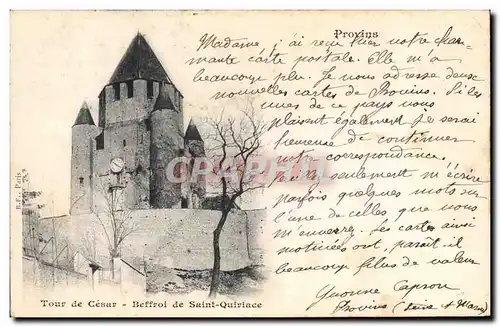 Provins
Madame, j'ai reçu hier votre char-
mante carte postale. Elle m'a
beaucoup plu. Je vous adresse deux
nouvelles cartes de Provins. Si les
vues de ce pays vous
plaisent également je serai
heureuse de continuer
notre correspondance.
seulement m'écrire
parfois quelques mots sur
l'une de celles que vous
m'enverrez. Les cartes ainsi
motivées ont, paraît-il
beaucoup plus de valeur
Yvonne Capron
Provins (Seine et Marne)
B.F. Paris
Tour de César - Beffroi de Saint-Quiriace